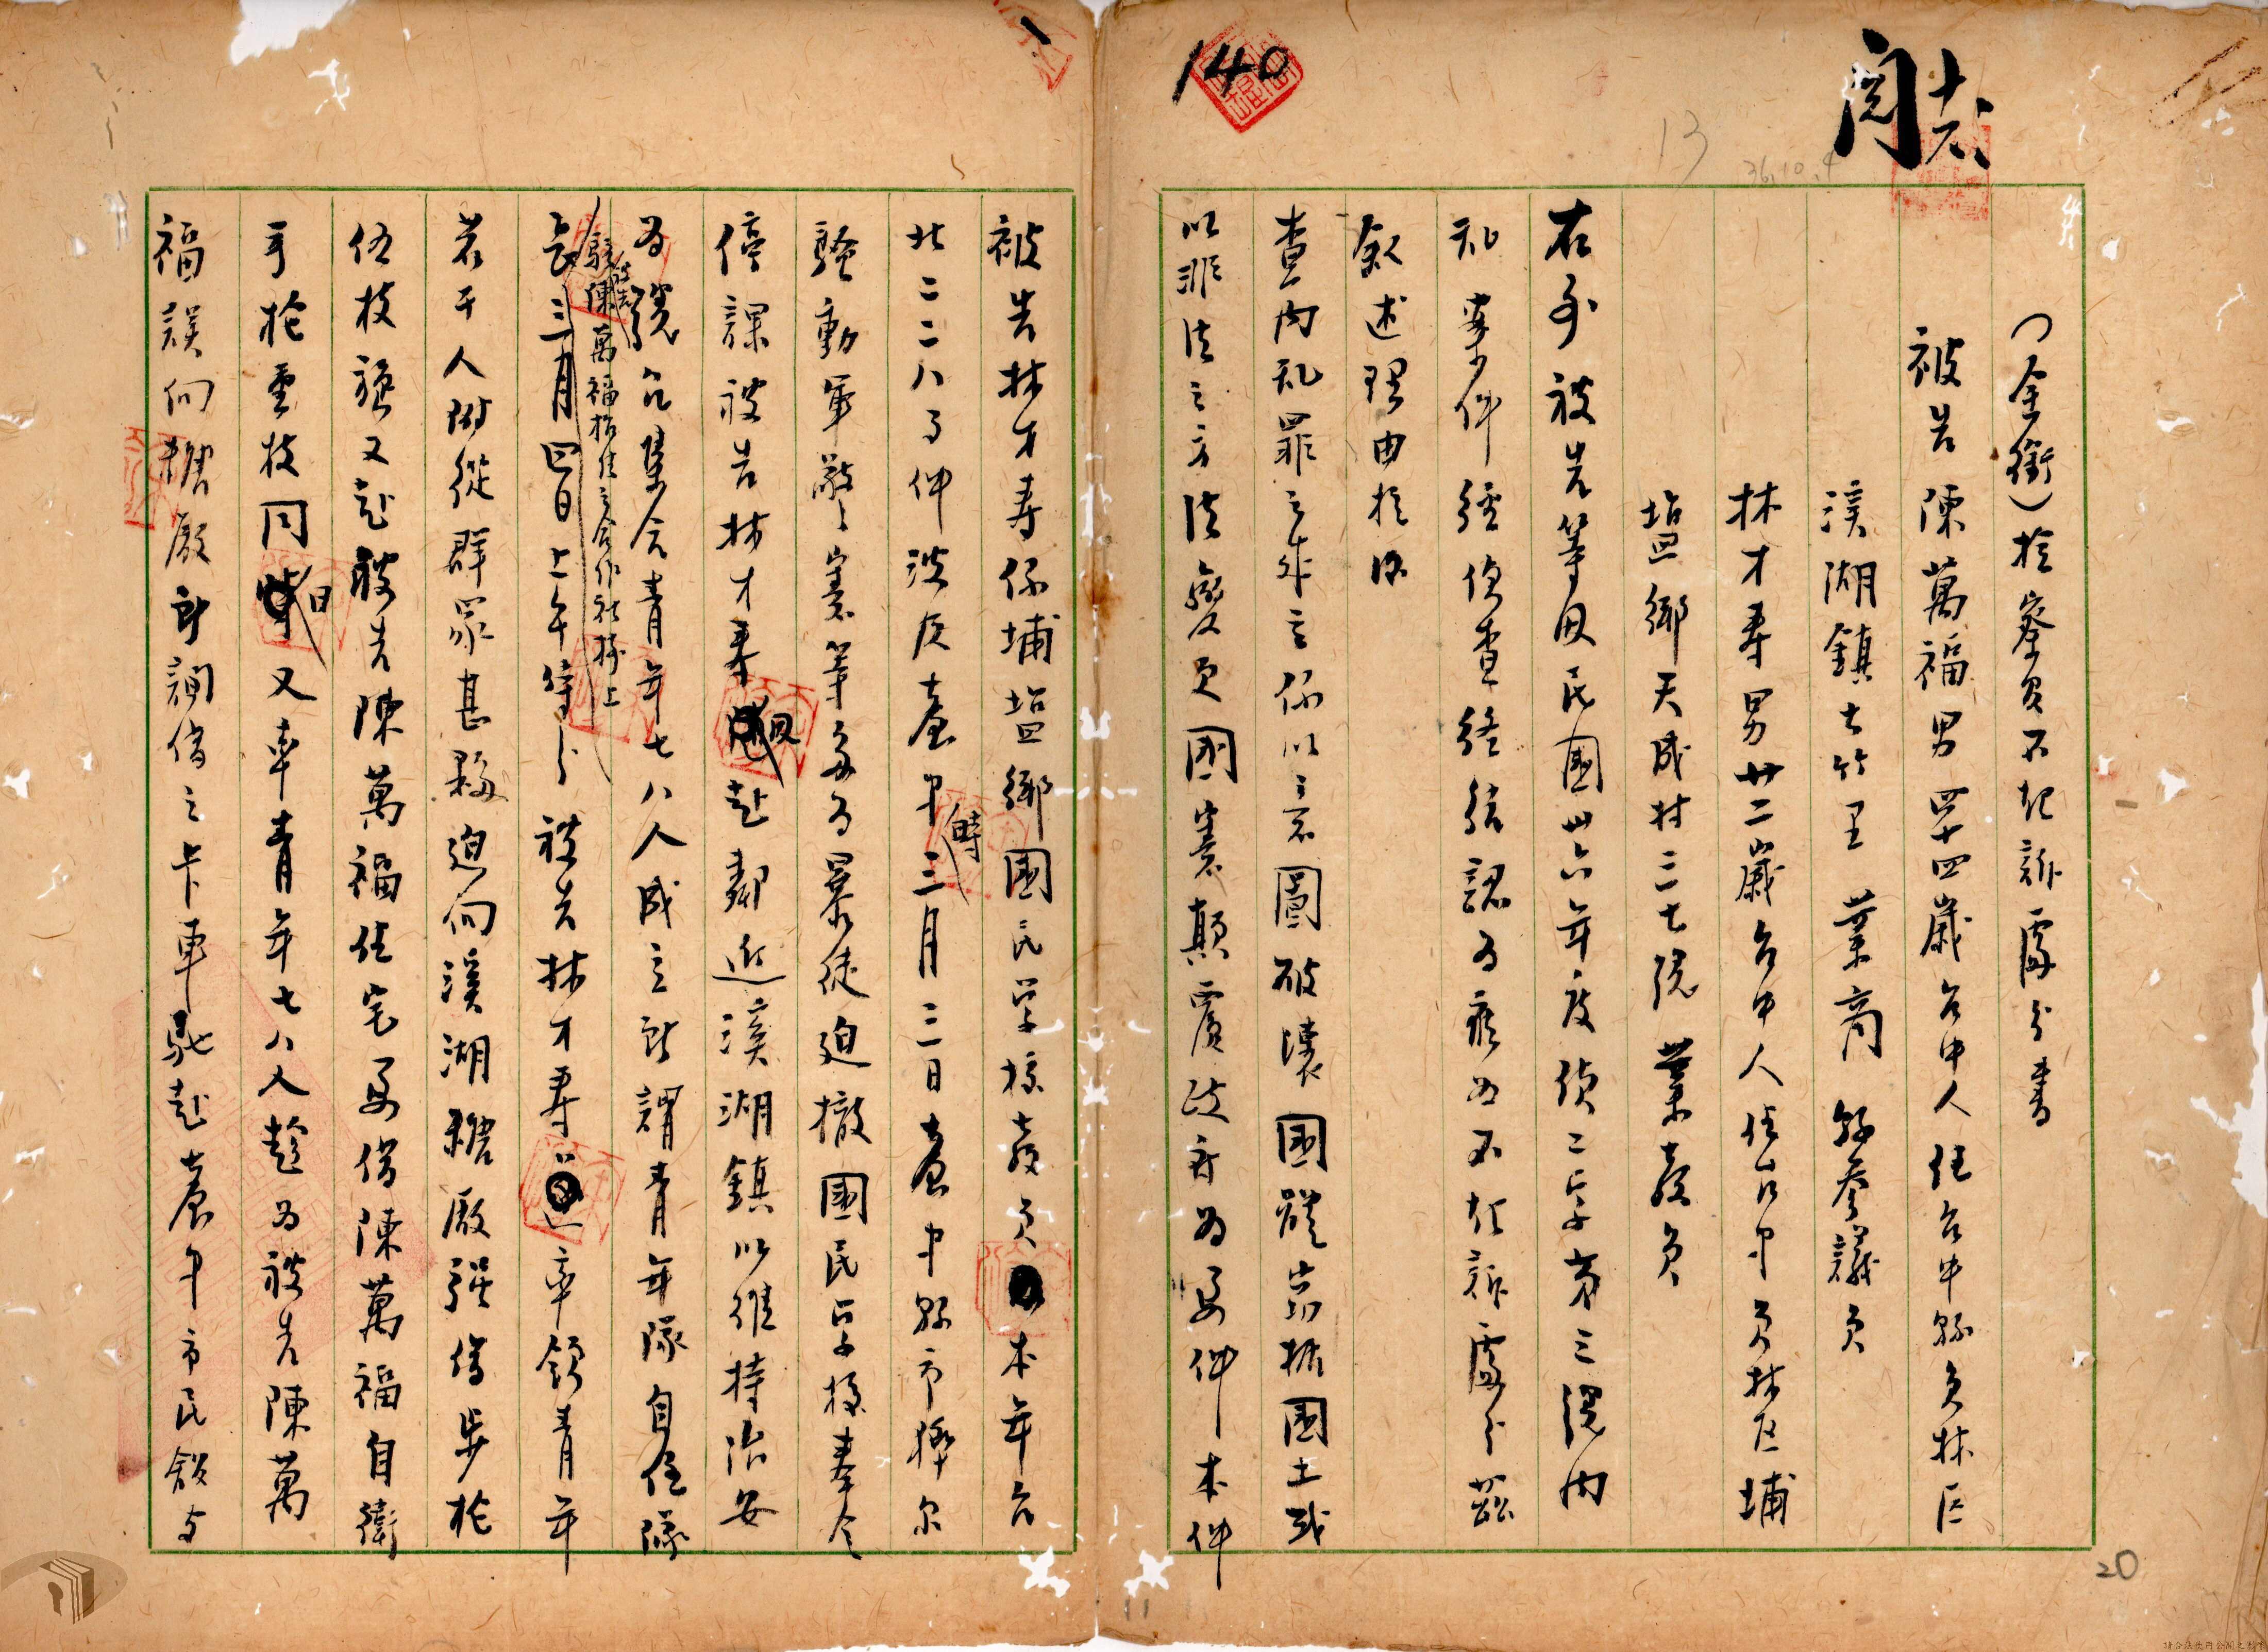 閱
140
13
36.10.4
(全銜)檢察官不起訴處分書
被告 陳萬福 男 四十四歲 台中人 住台中縣員林區
溪湖鎮大竹里 業商 縣參議員
林才壽 男 廿二歲 台中人 住台中員林區埔
塩鄉天成村三七號 業教員
右列被告等因民國卅六年度偵二字第三號內
乱案件經偵查終結認為應為不起訴處分茲
敘述理由於后
查內乱罪之成立係以意圖破壞國體竊據國土或
以非法之方法變更國憲顛覆政府為要件本件
被告林才壽係埔塩鄉國民学校教員本年台
北二二八事件波及臺中時三月三日臺中縣市獰尔
騷動軍警憲等多為暴徒迫撤國民学校奉令
停課被告林才壽回赴鄰近溪湖鎮以維持治安
為號召集合青年七八人成立所謂青年隊自任隊
長駐於陳萬福担任之合作社樓上三月四日上午時許被告林才壽率領青年
若干人附從群眾甚夥迫向溪湖糖廠强借步枪
伍枝旋又赴被告陳萬福住宅要借陳萬福自衛
手枪壹枝同日又率青年七八人趁為被告陳萬
福誤向糖廠所調借之卡車馳赴臺中市民館与
20
11